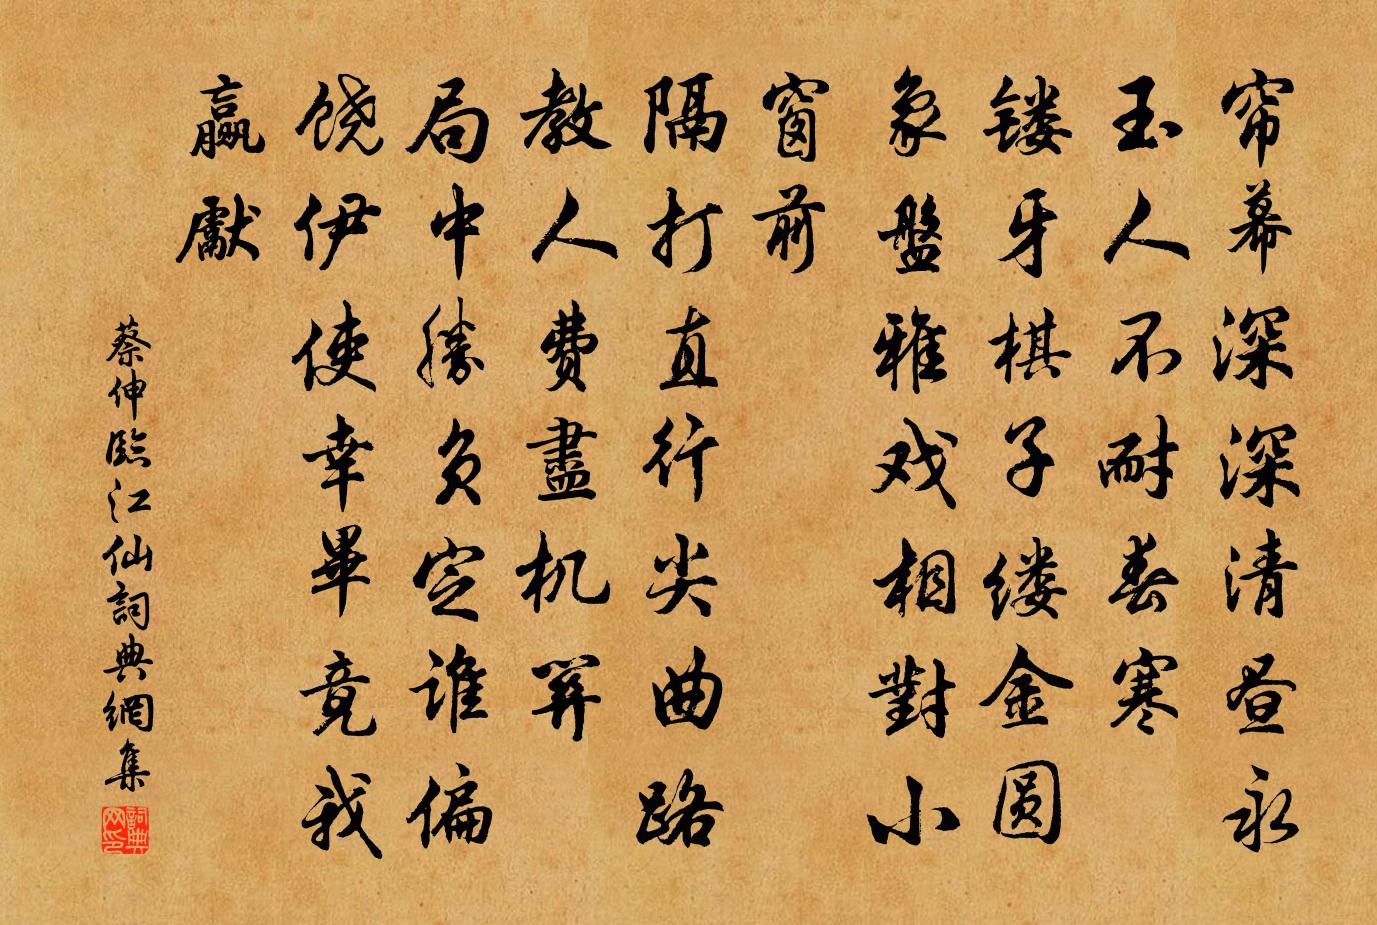 帘幕深深清昼永
玉人不耐春寒
镂牙棋子缕金圆
象盤雅戏相對小
窗前
隔打直行尖曲路
教人費盡机關
局中勝负定谁偏
饶伊使幸畢竟我
贏獻
蔡伸臨江仙詞典網集
詞典网印